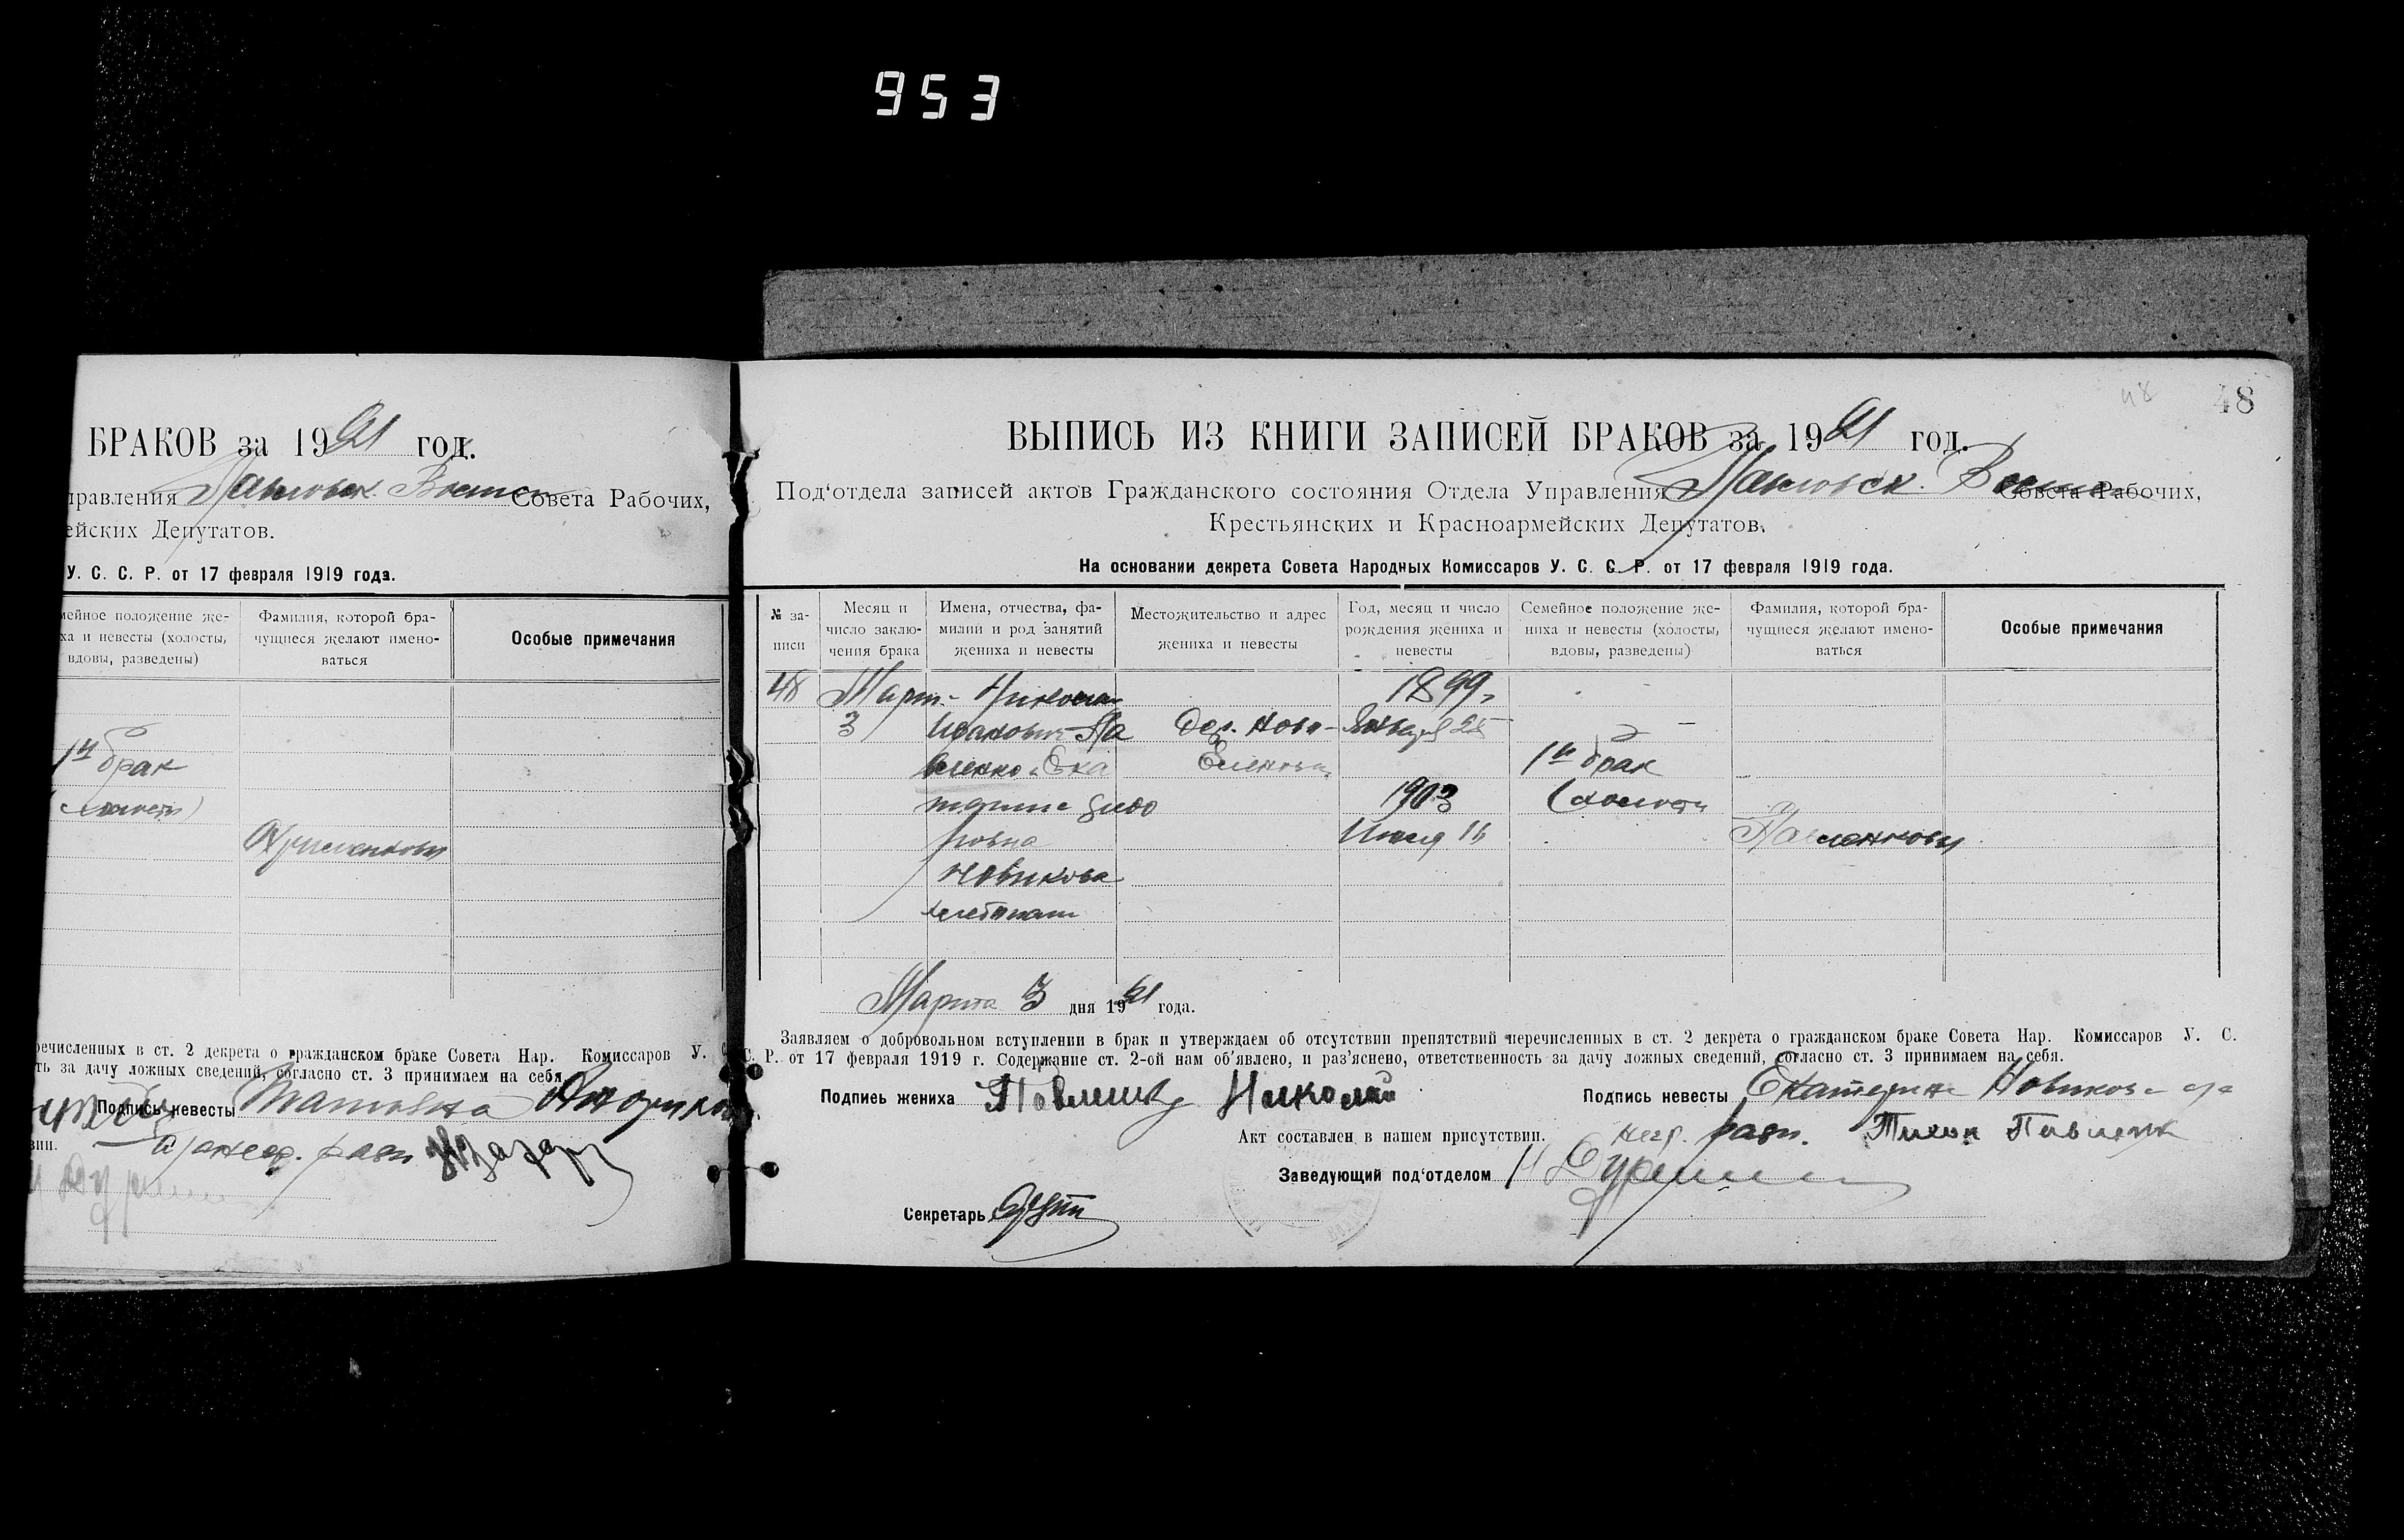 953
БРАКОВ за 1921 год.
правления Совета Рабочих,
ейских Депутатов.
У. С. С. Р. от 17 февраля 1919 года.
мейное положение же-
ха и невесты (холосты,
вдовы, разведены)
Фамилия, которой бра-
чущиеся желают имено-
ваться
Особые примечания
1й брак
(холосты)
еречисленных в ст. 2 декрета о гражданском браке Совета Нар. Комиссаров У. С.
ть за дачу ложных сведений, согласно ст. 3 принимаем на себя.
Подпись невесты
48
48
ВЫПИСЬ ИЗ КНИГИ ЗАПИСЕЙ БРАКОВ за 1921 год.
Под‘отдела записей актов Гражданского состояния Отдела Управления Совета Рабочих,
Крестьянских и Красноармейских Депутатов.
На основании декрета Совета Народных Комиссаров У. С. С. Р. от 17 февраля 1919 года.
№ за-
писи
Месяц и
число заклю-
чения брака
Имена, отчества, фа-
милии и род занятий
жениха и невесты
Местожительство и адрес
жениха и невесты
Год, месяц и число
рождения жениха и
невесты
Семейное положение же-
ниха и невесты (холосты,
вдовы, разведены)
Фамилия, которой бра-
чущиеся желают имено-
ваться
Особые примечания
48 Март. Николай 1899,
3 Иванович Па Дер. Ново- Января 25
вленко и Ека Еленовка 1й брак
терина 1903 (холосты
ровна Июля 16 Павленковы
Новикова
Марта 3 дня 1921 года.
Заявляем о добровольном вступлении в брак и утверждаем об отсутствии препятствий перечисленных в ст. 2 декрета о гражданском браке Совета Нар. Комиссаров У. С.
С. Р. от 17 февраля 1919 г. Содержание ст. 2-ой нам об‘явлено, и раз‘яснено, ответственность за дачу ложных сведений, согласно ст. 3 принимаем на себя.
Подпись жениха Николай Подпись невесты Екатерина Новикова
Акт составлен в нашем присутствии. Тихон
Заведующий под‘отделом
Секретарь